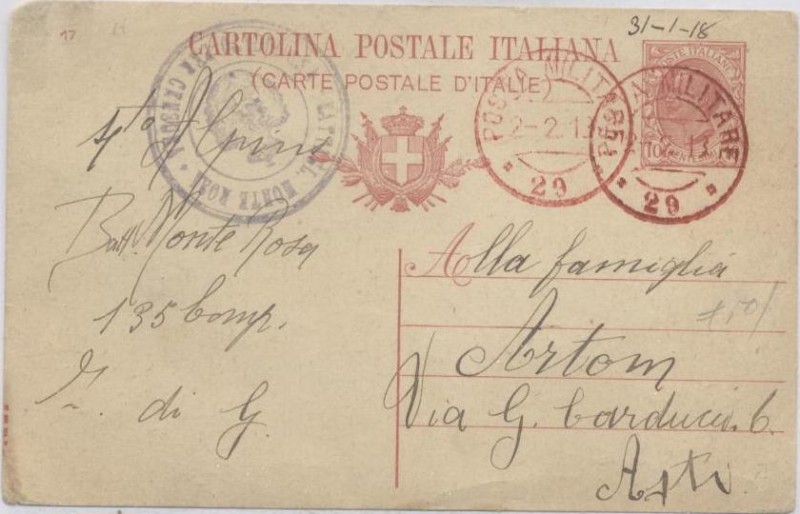 31-1-18
17
CARTOLINA POSTALE ITALIANA
(CARTE POSTALE D'ITALIE)
POSTE ITALIANE
10
POSTA MILITARE
2-2-18
29
POSTA MILITARE
29
MONTE ROSA
PER CENSURA
4° Alpini
Batt. Monte Rosa
135 Comp.
Z. di G.
Alla famiglia
Artom
Via G. Carducci. 6.
Asti